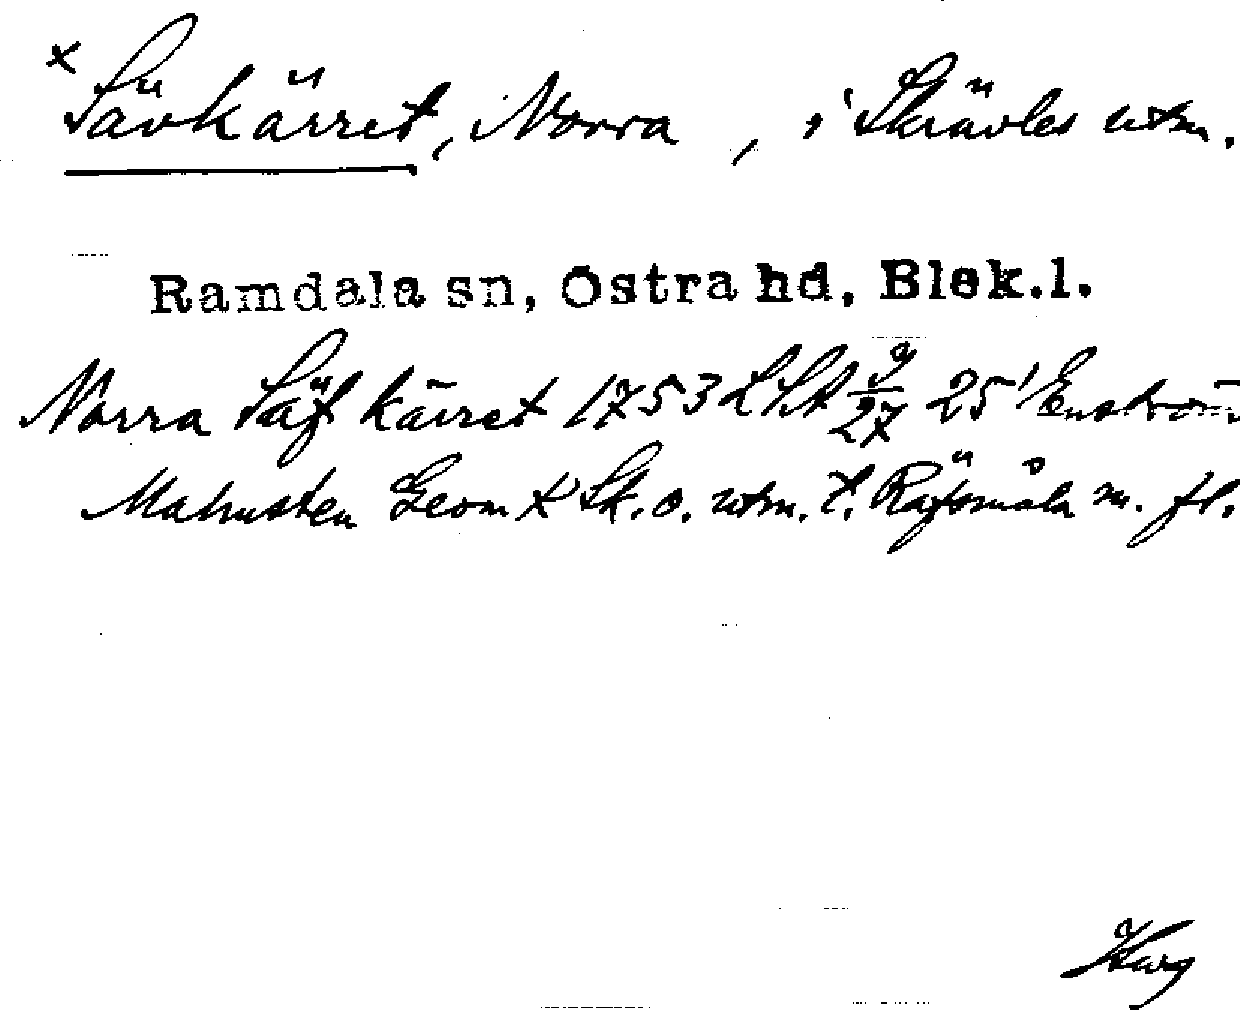 x Sävkärret, Norra, i Skrävles utm.
Ramdala sn, Östra hd, Blek.l.
Norra Säf kärret 1753 LSA 9/27 25 Enström
Malmsten Geom K Sk. o. utm. t. Räfsmåla m. fl.